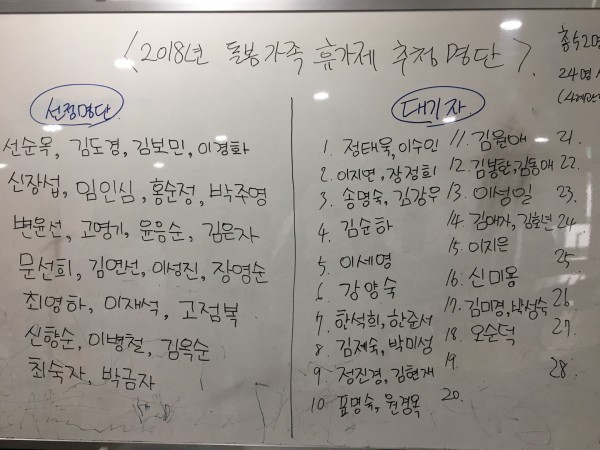 <2018년 돌봉가족 휴가제 추첨 명단>
총 수 2명
24명
선정명단
선순옥, 김도경, 김보민, 이경화
신장섭, 임인심, 홍순정, 박주영
변윤선, 고영기, 윤응순, 김은자
문선희, 김연선, 이성진, 장영순
최영하, 이재석, 고점복
신항순, 이병철, 김옥순
최숙자, 박금자
대기자
1. 정태욱, 이수인
2. 이지연, 장정희
3. 송명숙, 김강우
4. 김순하
5. 이세영
6. 강양숙
7. 한석희, 한준서
8. 김제숙, 박미성
9. 정진경, 김현재
10. 표명숙, 원경옥
11. 김월애
12. 김봉란, 김동애
13. 이성일
14. 김애자, 김효년
15. 이지은
16. 신미옹
17. 김미경, 박성숙
18. 오순덕
19.
20.
21.
22.
23.
24
25.
26.
27.
28.